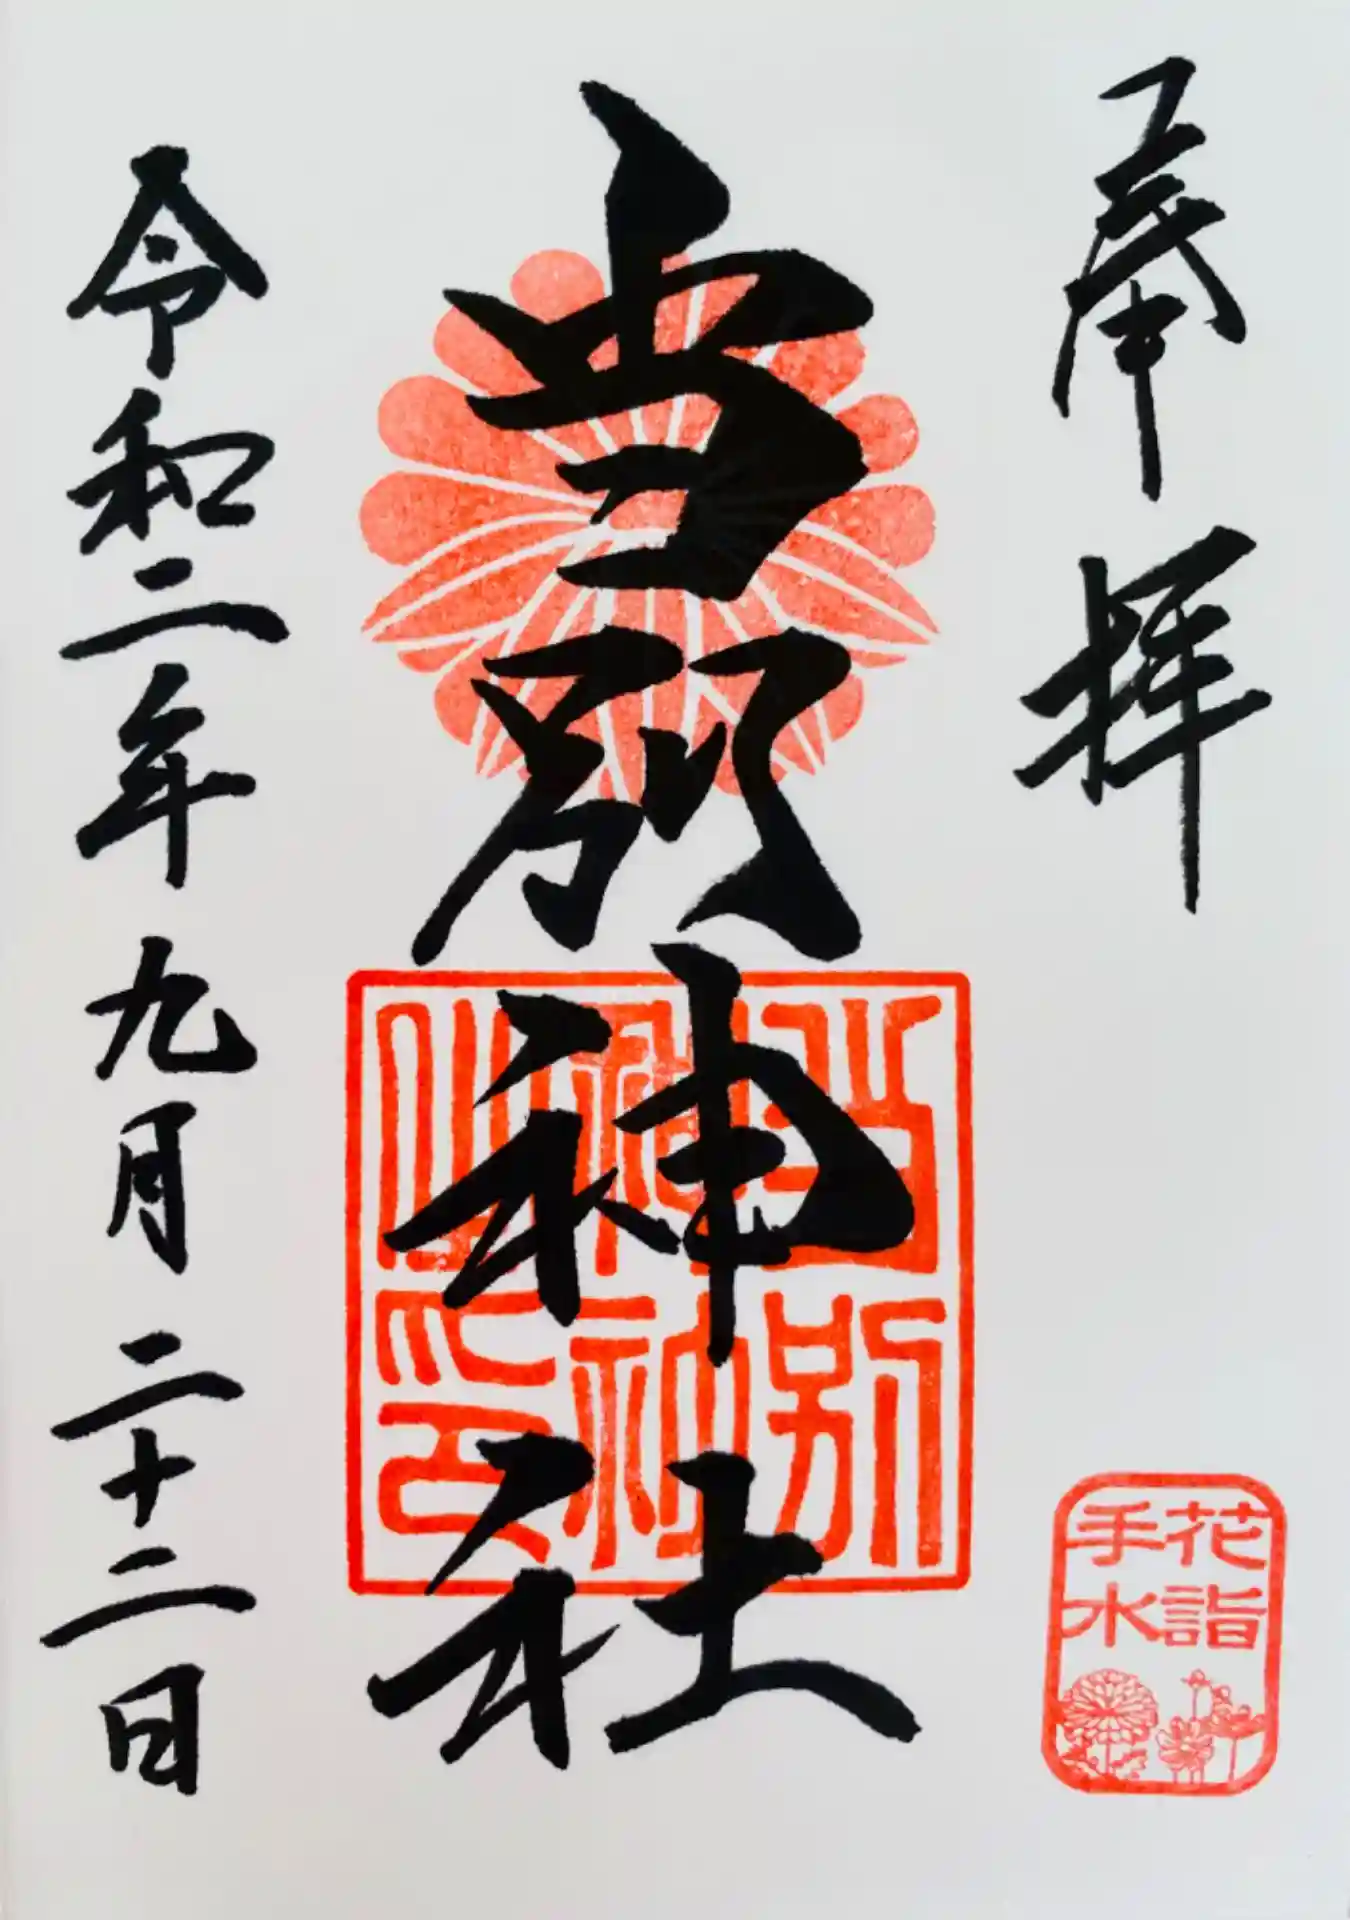 奉拝
当別神社
当別
神社
之印
令和二年九月二十二日
花詣
手水